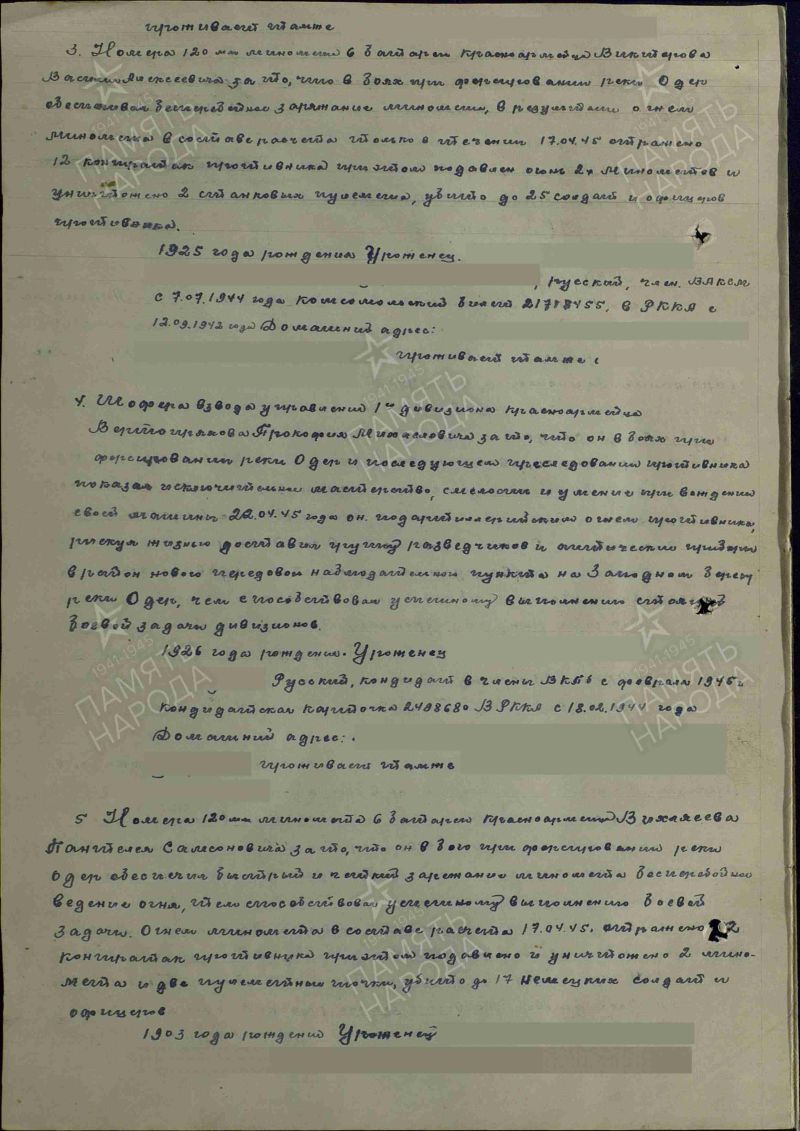 проживает тамже
3. Номера 120 мм миномета 6 батареи красноармейца Викторова
Василия Алексеевича за то, что в боях при форсировании реки Одер
обеспечивал бесперебойное заряжание миномета, в результате огнем
миномета в составе расчета только в течении 17.04.45 отражено
12 контратак противника при этом подавлен огонь 2х минометов и
уничтожено 2 станковых пулемета, убито до 25 солдат и офицеров
противника.
1925 года рождения Уроженец.
, Русский, член. ВЛКСМ
с 7.07.1944 года комсомольский билет в РККА с
12.09.1942 года Домашний адрес:
проживает тамже
4. Шофера взвода управления 1го дивизиона красноармейца
Прокофия за то, что он в боях при
форсировании реки Одер и последующем преследовании противника
показал исключительное мастерство, смелость и умение при вождении
своей машины 22.04.45 года он под артиллерийским огнем противника,
рискуя жизнью доставил группу разведчиков и оптические приборы
в район нового передового наблюдательного пункта на Западном берегу
реки Одер, чем способствовал успешному выполнению
боевой задачи дивизионов.
1926 года рождения. Уроженец
Русский, кондидат в члены ВКПб с февраля 1945 г
Кондидатская карточка 2498680 В РККА с 18.02.1944 года
Домашний адрес:
проживает тамже
5 Номера 120 мм миномета 6 батареи красноармейца Вихляева
Пантелея Самсоновича за то, что он в бою при форсировании реки
Одер обеспечил быстрый и четкий заряжание миномета бесперебойное
ведение огня, тем способствовал успешному выполнению боевой
задачи. Огнем миномета в составе расчета 17.04.45. отражено 12
контратак противника при этом подавлено и уничтожено 2 мино-
мета и две пулеметные точки, убито до 17 немецких солдат и
офицеров
1903 года рождения Уроженец
1941-1945
ПАМЯТЬ
НАРОДА